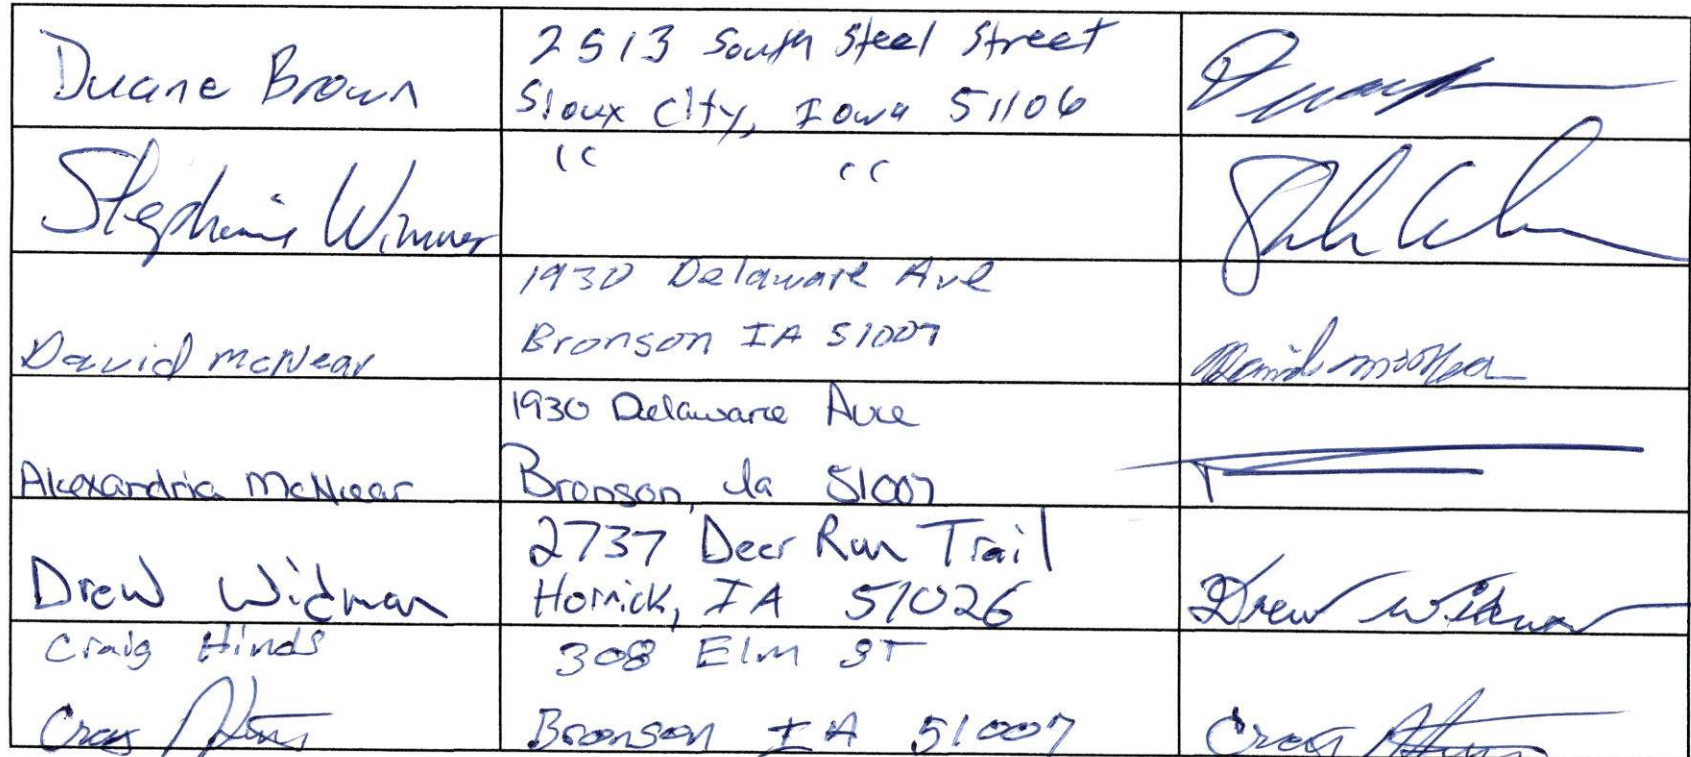 Duane Brown
2513 South Steel Street
Sioux City, Iowa 51106
Stephanie Wimmer
" "
David McNear
1930 Delaware Ave
Bronson IA 51007
David McNear
Alexandria McNear
1930 Delaware Ave
Bronson, Ia 51007
Drew Widman
2737 Deer Run Trail
Hornick, IA 51026
Drew Widman
Craig Hinds
Craig Hinds
308 Elm ST
Bronson IA 51007
Craig Hinds